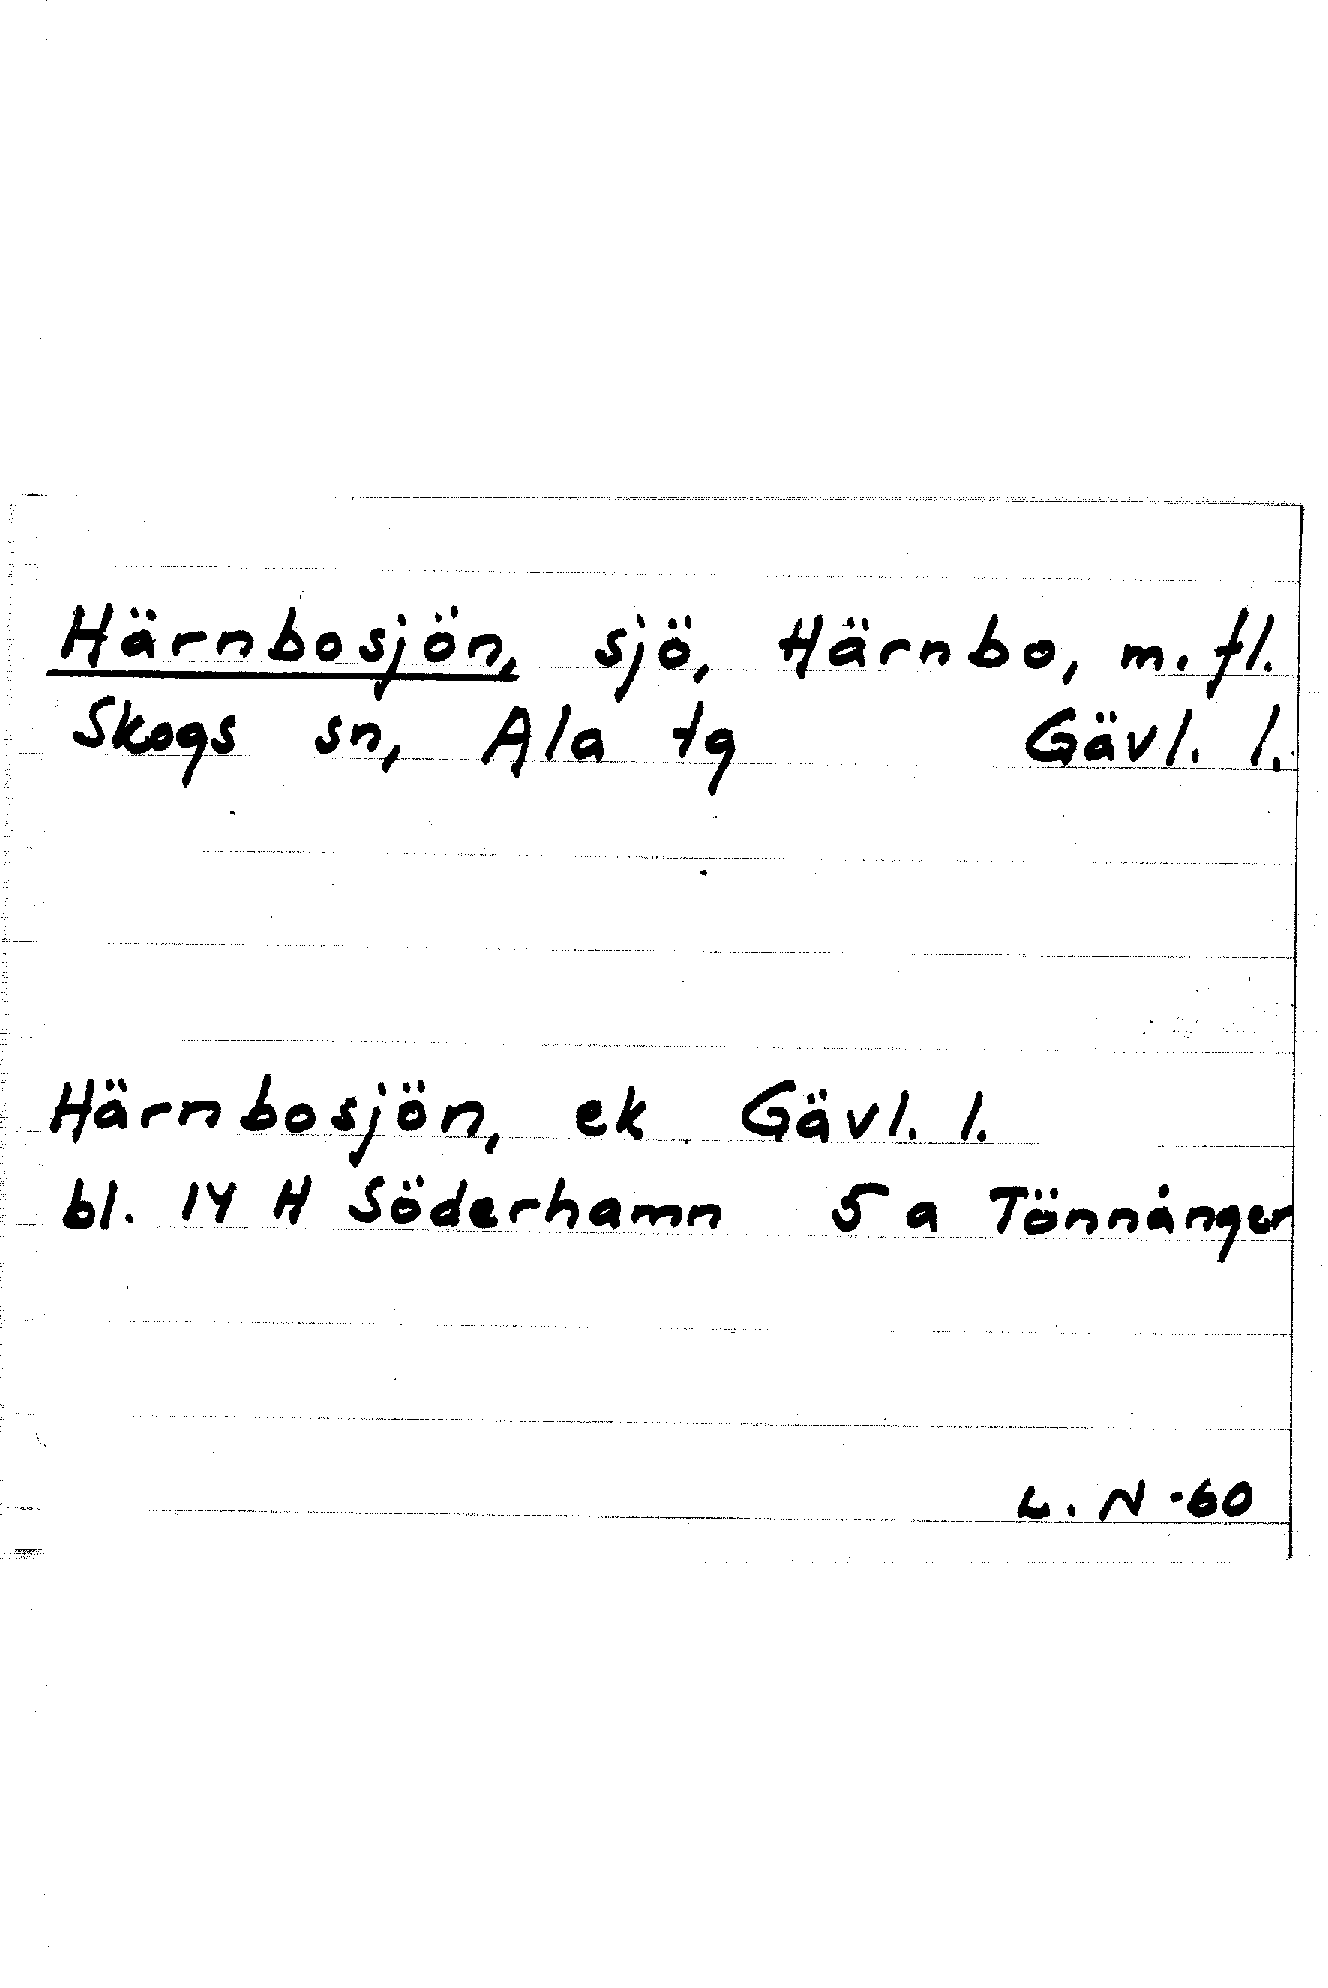 Härnbosjön, sjö, Härnbo, m. fl.
Skogs sn, Ala tg Gävl. l.
Härnbosjön, ek Gävl. l.
bl. 14 H Söderhamn 5 a Tönnånger
L. N -60